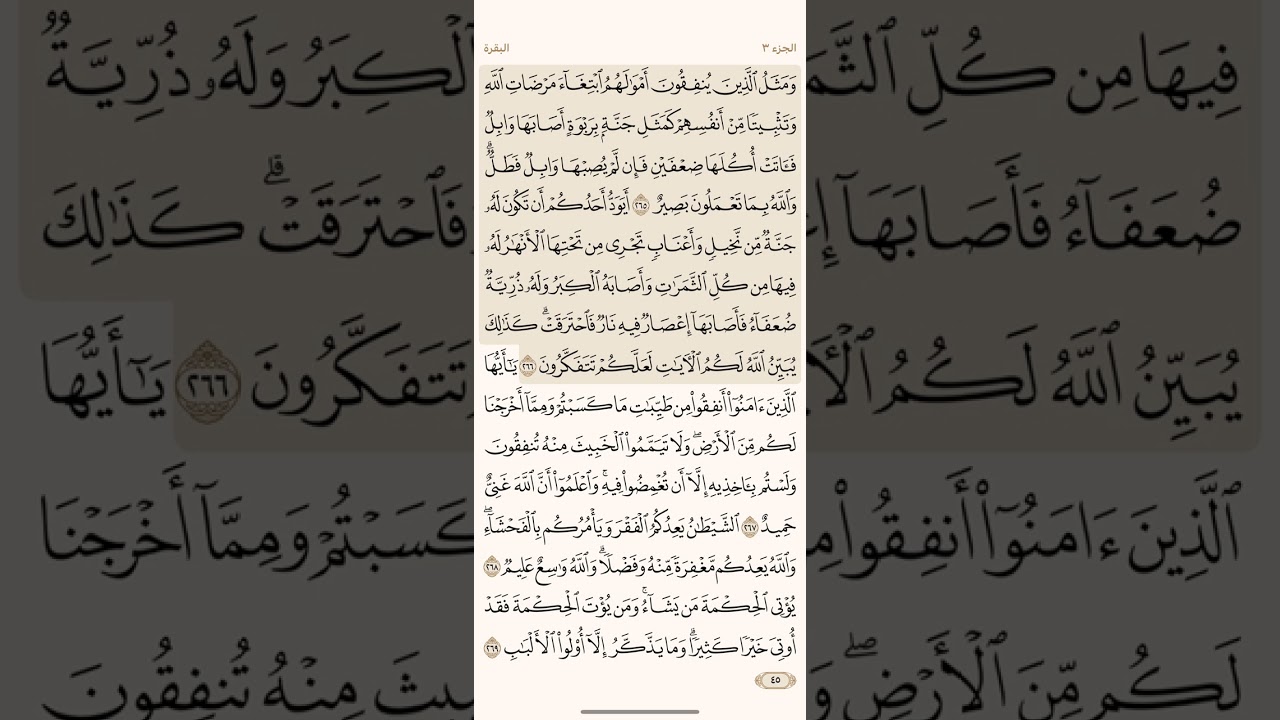 الجزء ٣
البقرة
وَمَثَلُ ٱلَّذِينَ يُنفِقُونَ أَمْوَٰلَهُمُ ٱبْتِغَآءَ مَرْضَاتِ ٱللَّهِ
وَتَثْبِيتًا مِّنْ أَنفُسِهِمْ كَمَثَلِ جَنَّةٍۭ بِرَبْوَةٍ أَصَابَهَا وَابِلٌ
فَـَٔاتَتْ أُكُلَهَا ضِعْفَيْنِ فَإِن لَّمْ يُصِبْهَا وَابِلٌ فَطَلٌّ ۗ
وَٱللَّهُ بِمَا تَعْمَلُونَ بَصِيرٌ ٢٦٥ أَيَوَدُّ أَحَدُكُمْ أَن تَكُونَ لَهُۥ
جَنَّةٌ مِّن نَّخِيلٍ وَأَعْنَابٍ تَجْرِى مِن تَحْتِهَا ٱلْأَنْهَٰرُ لَهُۥ
فِيهَا مِن كُلِّ ٱلثَّمَرَٰتِ وَأَصَابَهُ ٱلْكِبَرُ وَلَهُۥ ذُرِّيَّةٌ
ضُعَفَآءُ فَأَصَابَهَآ إِعْصَارٌ فِيهِ نَارٌ فَٱحْتَرَقَتْ ۗ كَذَٰلِكَ
يُبَيِّنُ ٱللَّهُ لَكُمُ ٱلْـَٔايَٰتِ لَعَلَّكُمْ تَتَفَكَّرُونَ ٢٦٦ يَٰٓأَيُّهَا
ٱلَّذِينَ ءَامَنُوٓا۟ أَنفِقُوا۟ مِن طَيِّبَٰتِ مَا كَسَبْتُمْ وَمِمَّآ أَخْرَجْنَا
لَكُم مِّنَ ٱلْأَرْضِ ۖ وَلَا تَيَمَّمُوا۟ ٱلْخَبِيثَ مِنْهُ تُنفِقُونَ
وَلَسْتُم بِـَٔاخِذِيهِ إِلَّآ أَن تُغْمِضُوا۟ فِيهِ ۚ وَٱعْلَمُوٓا۟ أَنَّ ٱللَّهَ غَنِىٌّ
حَمِيدٌ ٢٦٧ ٱلشَّيْطَٰنُ يَعِدُكُمُ ٱلْفَقْرَ وَيَأْمُرُكُم بِٱلْفَحْشَآءِ ۖ
وَٱللَّهُ يَعِدُكُم مَّغْفِرَةً مِّنْهُ وَفَضْلًا ۗ وَٱللَّهُ وَٰسِعٌ عَلِيمٌ ٢٦٨
يُؤْتِى ٱلْحِكْمَةَ مَن يَشَآءُ ۚ وَمَن يُؤْتَ ٱلْحِكْمَةَ فَقَدْ
أُوتِىَ خَيْرًا كَثِيرًا ۗ وَمَا يَذَّكَّرُ إِلَّآ أُو۟لُوا۟ ٱلْأَلْبَٰبِ ٢٦٩
٤٥